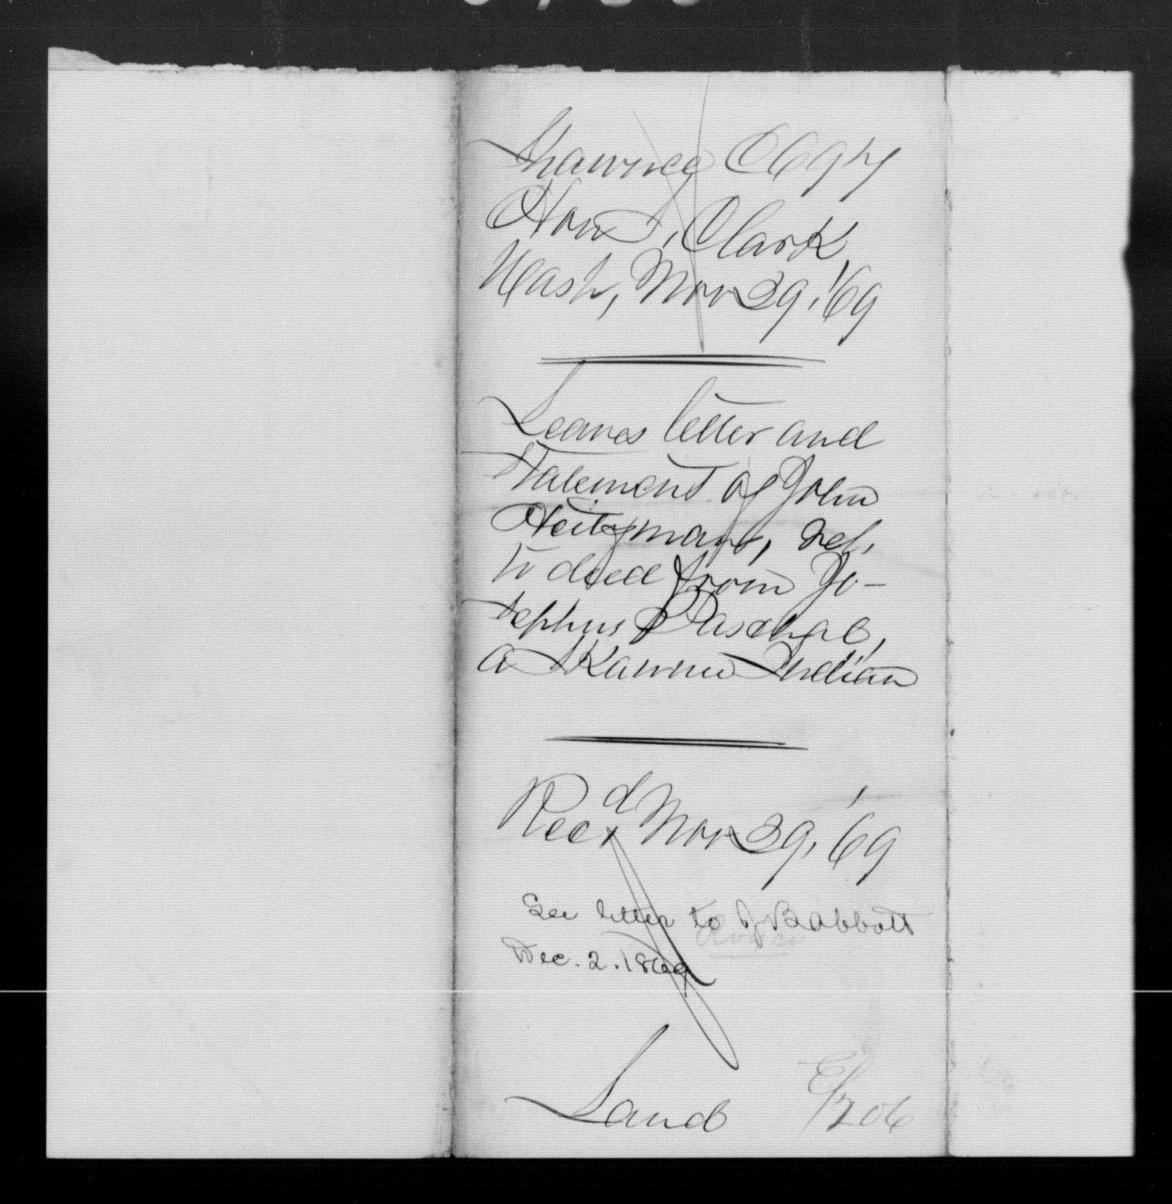 Shawnee C697
Hon S. Clark,
Wash, Nov 29, '69
Leaves letter and
statement of John
Heitzman, rel.
to deed from Jo-
sephus Paschal,
a Shawnee Indian
Recd Nov 29, '69
See letter to J B Abbott
Dec. 2. 1869
Land